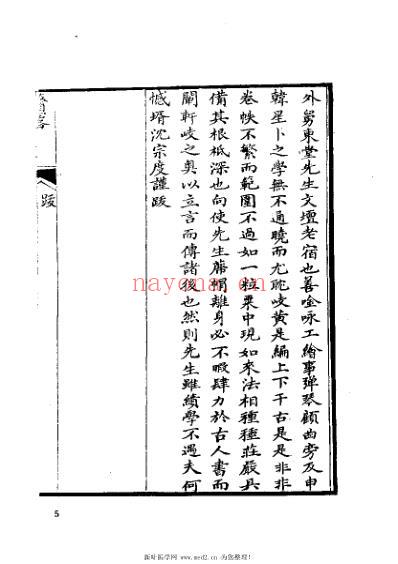 外舅東堂先生文壇老宿也善唫咏工繪事彈琴顧曲旁及申
韓星卜之學無不通曉而尤耽岐黄是編上下千古是是非非
卷帙不繁而範圍不過如一粒粟中現如來法相種種莊嚴具
備其根柢深也向使先生腊儤離身必不暇肆力於古人書而
闡軒岐之奥以立言而傳諸後也然則先生雖績學不遇夫何
憾壻沈宗度謹跋
跋
nayona.cn
5
新叶医学网 www.med2.cn 为您整理!